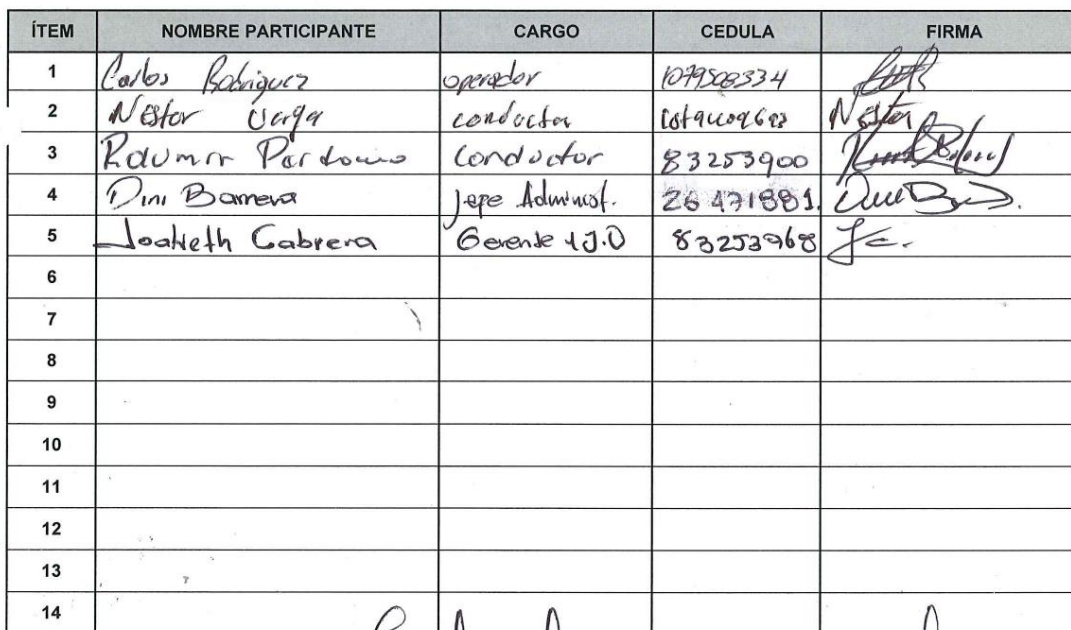 ÍTEM NOMBRE PARTICIPANTE CARGO CEDULA FIRMA
1 Carlos Rodriguez operador 1079508334
2 Nestor Varga conductor Nestor
3 Perdomo Conductor 83253900
4 Dini Barrera Jepe Administ. 26 471881.
5 Cabrera Gerente 83253968 Jc.
6
7
8
9
10
11
12
13
14